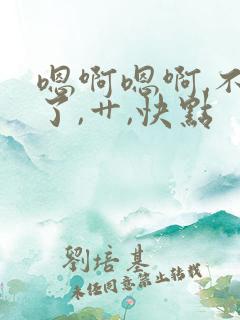 嗯啊嗯啊,不
了,艹,快點
劉培基
未經同意禁止轉載